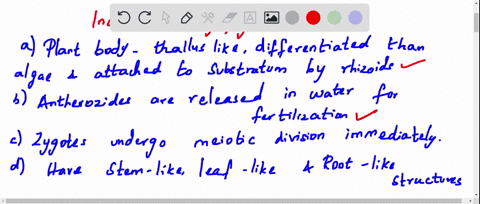 a) Plant body - thallus like, differentiated than
algae & attached to substratum by rhizoids
b) Antherozides are released in water for
fertilization
c) Zygotes undergo meiotic division immediately.
d) Have Stem-like, leaf-like & Root-like
structures